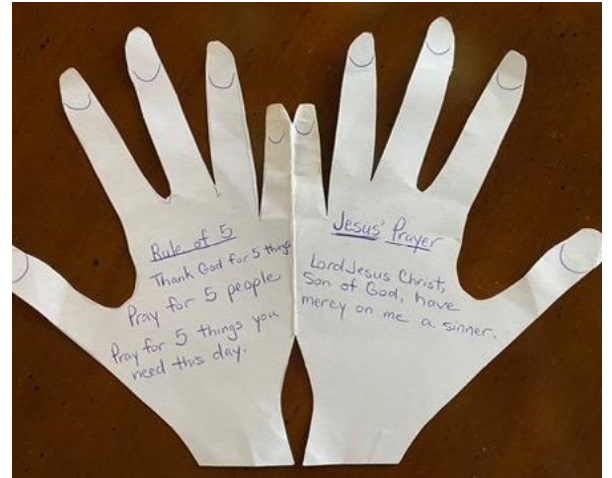 Rule of 5
Thank God for 5 things
Pray for 5 people
Pray for 5 things you
need this day.
Jesus' Prayer
Lord Jesus Christ,
Son of God, have
mercy on me a sinner.